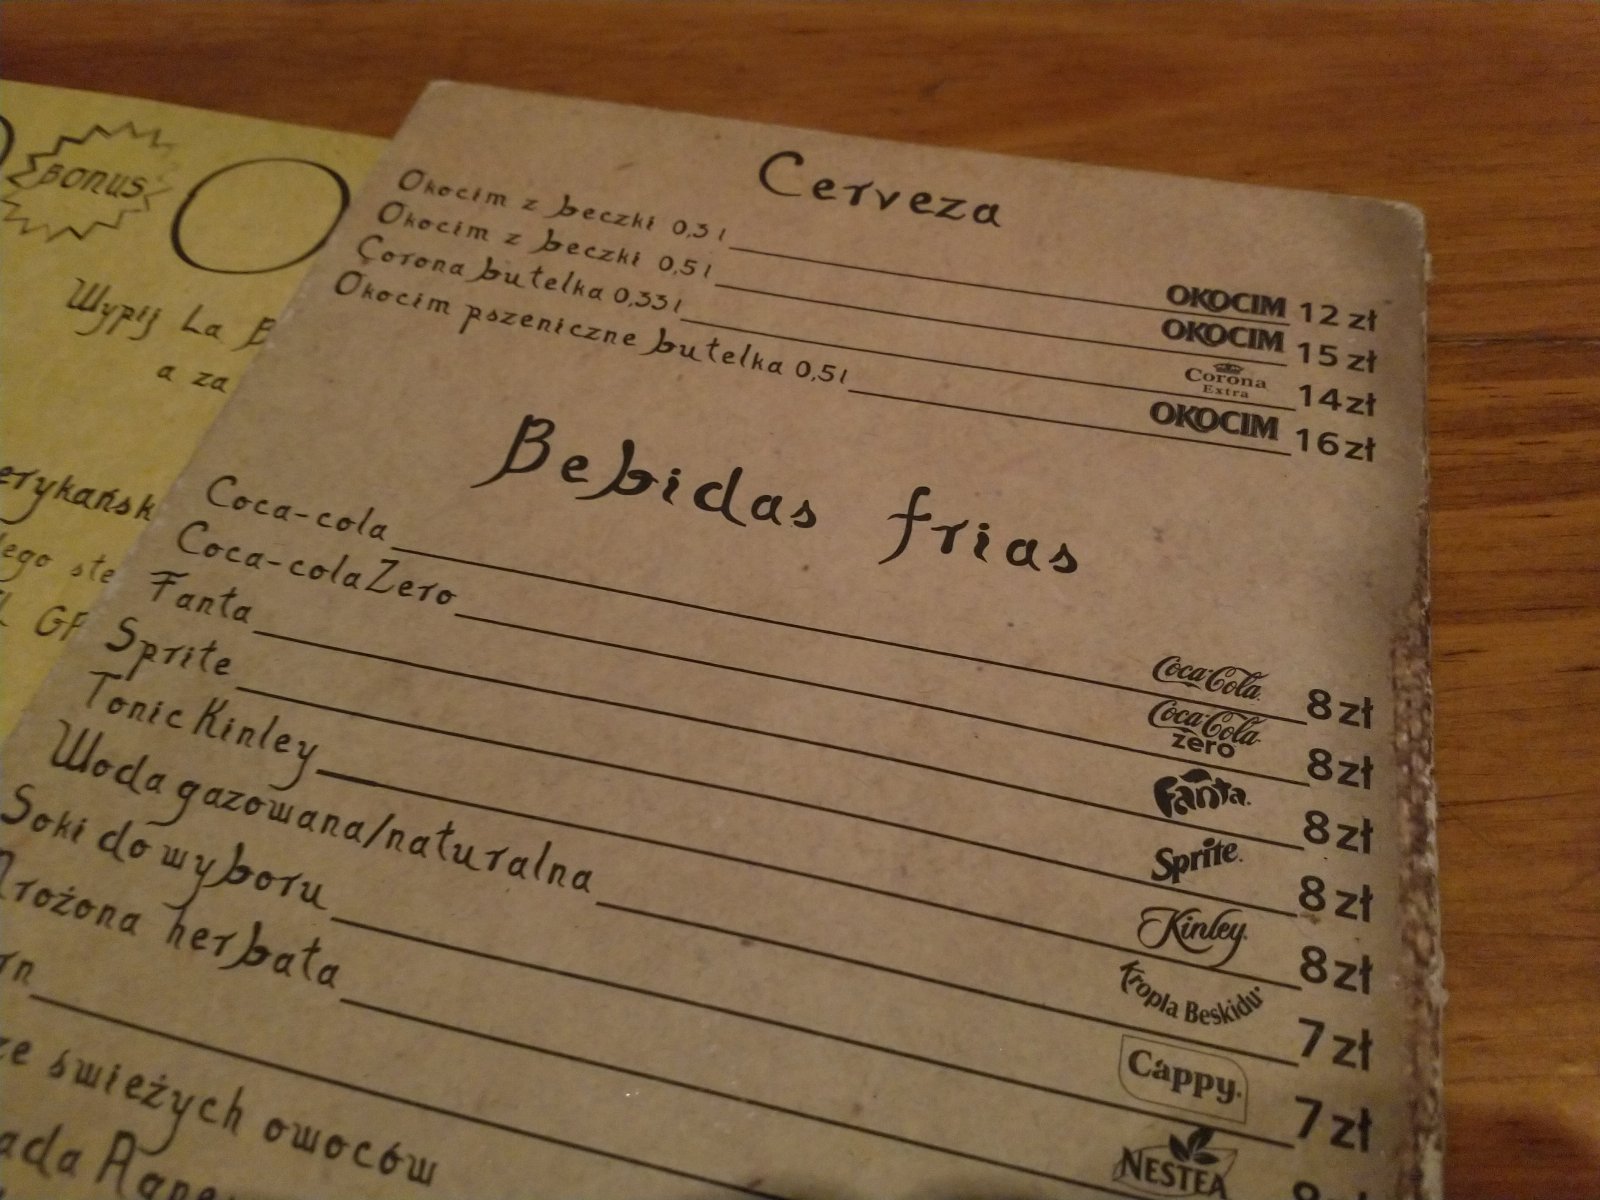 BONUS
Wypij La
a za
Cerveza
Okocim z beczki 0,3 l OKOCIM 12 zł
Okocim z beczki 0,5 l OKOCIM 15 zł
Corona butelka 0,33 l Corona Extra 14 zł
Okocim pszeniczne butelka 0,5 l OKOCIM 16 zł
Bebidas frias
Coca-cola Coca-Cola 8 zł
Coca-cola Zero Coca-Cola zero 8 zł
Fanta Fanta 8 zł
Sprite Sprite 8 zł
Tonic Kinley Kinley 8 zł
Woda gazowana/naturalna Kropla Beskidu 7 zł
Soki do wyboru Cappy 7 zł
Mrożona herbata NESTEA
świeżych owoców